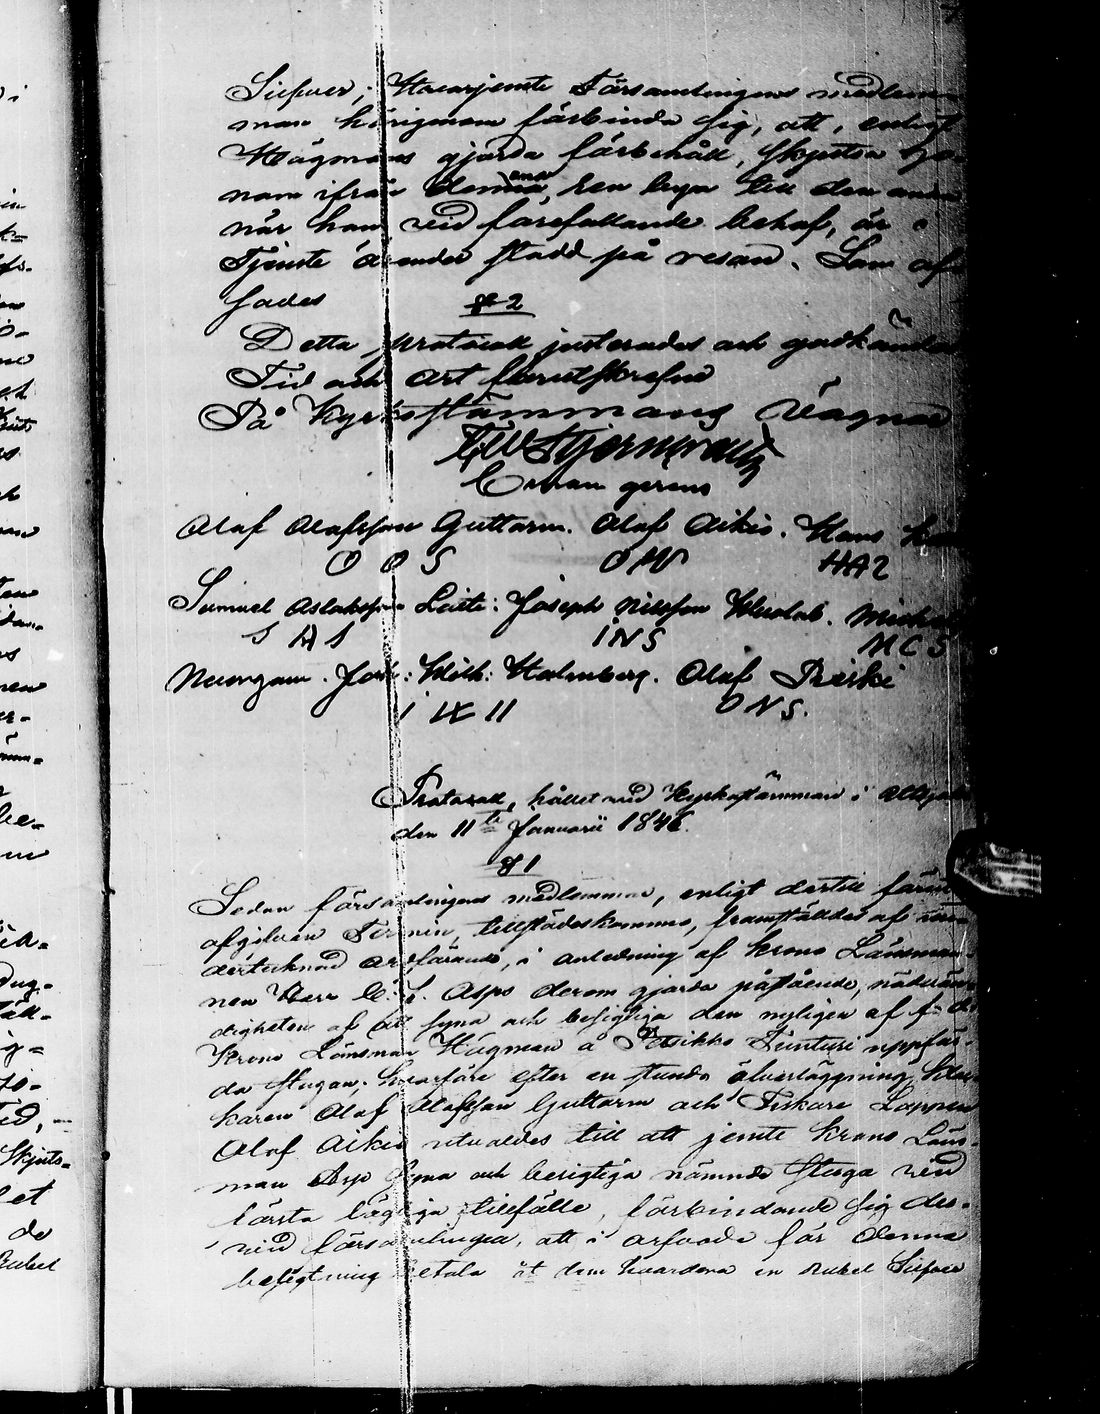 Silfver; Hvarjemte Församlingens medlem-
mar härigenom förbinda sig, att, enligt
Högmans gjorda förbehåll, skjutsa ho-
nom ifrån denna ena byn till den andra
när han vid förefallande behof, är i
Tjenste ärender stadd på resan. Som af-
sades
§ 2
Detta protocoll justerades och godkändes
Tid och Ort förutskrefne
På Kyrkostämmans vägnar
Stjerncreutz
gerens
Olof Olofsson Guttorm. Olof Aikio. Hans
O O S O W HA2
Samuel Aslaksson Laiti: Joseph Nilsson. Michel
S A S INS M C S
Joh: Wilh: Holmberg. Olof
O N S.
Protocoll, hållet vid Kyrkostämman i Utsjoki
den 11te Januarii 1846.
§ 1
Sedan församlingens medlemmar, enligt dertill förut
afgifven Termin, tillstädeskommo, framställdes af un-
dertecknad ordförande, i anledning af Krono Länsman-
nen Herr C: L. Asps derom gjorda påstående, nödvän-
digheten af att syna och besigtiga den nyligen af f: d:
Krono Länsman Högman å Tunturi uppför-
da stugan; hvarföre efter en stunds öfverläggning Kloc-
karen Olof Olofsson Guttorm och Fiskare Lappen
Olof Aikio utvaldes till att jemte Krono Läns-
man Asp syna och besigtiga nämnde stuga vid
första lägliga tillfälle, förbindande sig der-
vid församlingen, att i arfvode för denna
besigtning betala åt dem hvardera en Rubel Silfver